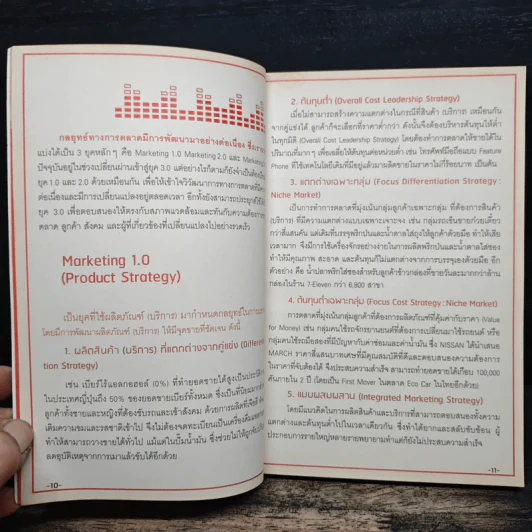 กลยุทธ์ทางการตลาดมีการพัฒนามาอย่างต่อเนื่อง ซึ่งภาพ
แบ่งได้เป็น 3 ยุคหลักๆ คือ Marketing 1.0 Marketing 2.0 และ Marketing
ปัจจุบันอยู่ในช่วงเปลี่ยนผ่านเข้าสู่ยุค 3.0 แต่อย่างไรก็ตามก็ยังจำเป็นต้อง
ยุค 1.0 และ 2.0 ด้วยเหมือนกัน เพื่อให้เข้าใจวิวัฒนาการทางการตลาดที่มี
ต่อเนื่องและมีการเปลี่ยนแปลงอยู่ตลอดเวลา อีกทั้งยังสามารถประยุกต์ใช้
ยุค 3.0 เพื่อตอบสนองให้ตรงกับสภาพแวดล้อมและทันกับความต้องการ
ตลาด ลูกค้า สังคม และผู้ที่เกี่ยวข้องที่เปลี่ยนแปลงไปอย่างรวดเร็ว
Marketing 1.0
(Product Strategy)
เป็นยุคที่ใช้ผลิตภัณฑ์ (บริการ) มากำหนดกลยุทธ์ในการ
โดยมีการพัฒนาผลิตภัณฑ์ (บริการ) ให้มีจุดขายที่ชัดเจน ดังนี้
1. ผลิตสินค้า (บริการ) ที่แตกต่างจากคู่แข่ง (Differentia
tion Strategy)
เช่น เบียร์ไร้แอลกอฮอล์ (0%) ที่ทำยอดขายได้สูงเป็นประวัติ
ในประเทศญี่ปุ่นถึง 50% ของยอดขายเบียร์ทั้งหมด ซึ่งเป็นที่นิยม
ลูกค้าทั้งชายและหญิงที่ต้องขับรถและเข้าสังคม ด้วยการผลิตที่
เติมความขมและรสชาติเข้าไป จึงไม่ต้องจดทะเบียนเป็นเครื่องดื่ม
ทำให้สามารถวางขายได้ทั่วไป แม้แต่ในปั๊มน้ำมัน ซึ่งช่วยไม่ให้
ลดอุบัติเหตุจากการเมาแล้วขับได้อีกด้วย
-10-
2. ต้นทุนต่ำ (Overall Cost Leadership Strategy)
เมื่อไม่สามารถสร้างความแตกต่างในกรณีที่สินค้า (บริการ) เหมือนกัน
จากคู่แข่งได้ ลูกค้าก็จะเลือกที่ราคาต่ำกว่า ดังนั้นจึงต้องบริหารต้นทุนให้ต่ำ
ในทุกมิติ (Overall Cost Leadership Strategy) โดยต้องทำการตลาดให้ขายได้ใน
ปริมาณที่มากๆ เพื่อเฉลี่ยให้ต้นทุนต่อหน่วยต่ำ เช่น โทรศัพท์มือถือแบบ Feature
Phone ที่ใช้เทคโนโลยีเดิมที่มีอยู่แล้วมาผลิตขายในราคาไม่กี่ร้อยบาท เป็นต้น
3. แตกต่างเฉพาะกลุ่ม (Focus Differentiation Strategy :
Niche Market)
เป็นการทำการตลาดที่มุ่งเน้นกลุ่มลูกค้าเฉพาะกลุ่ม ที่ต้องการสินค้า
(บริการ) ที่มีความแตกต่างแบบเฉพาะเจาะจง เช่น กลุ่มรถเข็นขายก๋วยเตี๋ยว
กว่าสี่แสนคัน แต่เดิมที่บรรจุพริกป่นและน้ำตาลใส่ถุงให้ลูกค้าด้วยมือ ทำให้เสีย
เวลามาก จึงมีการใช้เครื่องจักรอย่างง่ายในการผลิตพริกป่นและน้ำตาลใส่ซอง
ทำให้มีคุณภาพ สะอาด และต้นทุนก็ไม่แตกต่างจากการบรรจุเองด้วยมือ อีก
ตัวอย่างคือ น้ำปลาพริกใส่ซองสำหรับลูกค้าข้าวกล่องที่ขายวันละมากกว่าล้าน
กล่องในร้าน 7-Eleven กว่า 6,800 สาขา
4. ต้นทุนต่ำเฉพาะกลุ่ม (Focus Cost Strategy : Niche Market)
การตลาดที่มุ่งเน้นกลุ่มลูกค้าที่ต้องการผลิตภัณฑ์ที่คุ้มค่ากับราคา (Value
for Money) เช่น กลุ่มคนใช้รถจักรยานยนต์ที่ต้องการเปลี่ยนมาใช้รถยนต์ หรือ
กลุ่มคนใช้รถมือสองที่มีปัญหากับค่าซ่อมและค่าน้ำมัน ซึ่ง NISSAN ได้นำเสนอ
MARCH ราคาสี่แสนบาทเศษที่มีคุณสมบัติที่ดีและตอบสนองความต้องการ
ในราคาที่จับต้องได้ จึงประสบความสำเร็จ สามารถทำยอดขายได้เกือบ 100,000
คันภายใน 2 ปี (โดยเป็น First Mover ในตลาด Eco Car ในไทยอีกด้วย)
5. แบบผสมผสาน (Integrated Marketing Strategy)
โดยมีแนวคิดในการผลิตสินค้าและบริการที่สามารถตอบสนองทั้งความ
แตกต่างและต้นทุนต่ำไปในเวลาเดียวกัน ซึ่งทำได้ยากและสลับซับซ้อน ผู้
ประกอบการรายใหญ่หลายรายพยายามทำแต่ก็ยังไม่ประสบความสำเร็จ
-11-